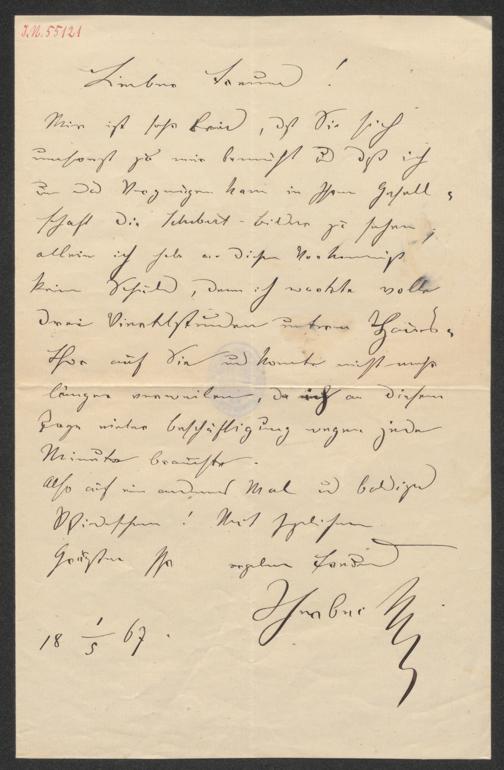 J.N. 55121
Lieber Freund!
Mir ist sehr leid, dß Sie sich
umsonst zu mir bemüht u dß ich
um das Vergnügen kam in Ihrer Gesell=
schaft die Schubert-Bilder zu sehen;
allein ich habe an diesem Vorkommniß
keine Schuld, denn ich wartete volle
drei Viertelstunden unterm Haus=
thor auf Sie und konnte nicht mehr
länger verweilen, da ich an diesem
Tage vieler Beschäftigung wegen jede
Minute brauchte.
Also auf ein anderes Mal u baldiges
Wiedersehen! Mit herzlichem
Gruße Ihr ergebener Freund
Herbeck
18 1/5 67.